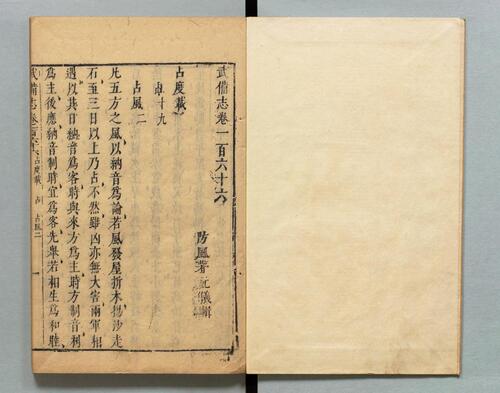 武備志卷一百六十六
防風茅元儀輯
占度載
占十九
占風二
凡五方之風以納音爲論若風發屋折木揚沙走
石至三日以上乃占不然雖凶亦無大害兩軍相
遇以其日納音爲客時與來方爲主時方制音利
爲主後應納音制時宜爲客先舉若相生爲和雖
武備志卷 占度載 占 占風二 一